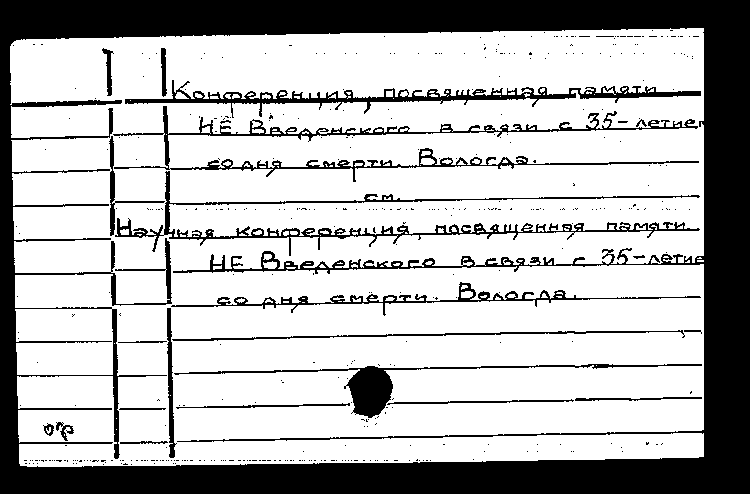 Конференция, посвященная памяти
Н.Е. Введенского в связи с 35-летием
со дня смерти. Вологда.
см.
Научная конференция, посвященная памяти
НЕ Введенского в связи с 35-летие
со дня смерти. Вологда.
огр